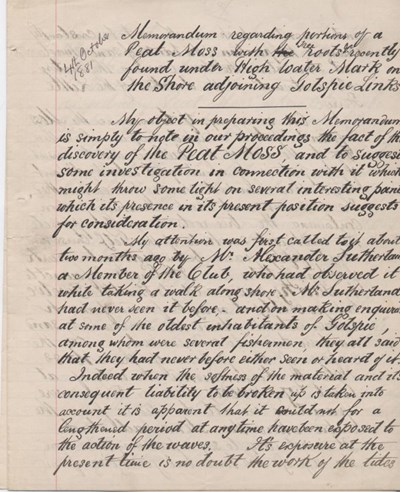 4th October
1881
Memorandum regarding portions of a
Peat Moss with tree roots recently
found under High Water Mark on
the Shore adjoining Golspie Links
My object in preparing this Memorandum
is simply to note in our proceedings the fact of the
discovery of the Peat Moss and to suggest
some investigation in connection with it which
might throw some light on several interesting
which its presence in its present position suggests
for consideration.
My attention was first called to it about
two months ago by Mr. Alexander Sutherland
a Member of the Club, who had observed it
while taking a walk along shore. Mr Sutherland
had never seen it before - and on making enquiries
at some of the oldest inhabitants of Golspie,
among whom were several fishermen, they all said
that they had never before either seen or heard of it.
Indeed when the softness of the material and its
consequent liability to be broken up is taken into
account it is apparent that it could not for a
lengthened period at any time have been exposed to
the action of the waves. It's exposure at the
present time is no doubt the work of the tides